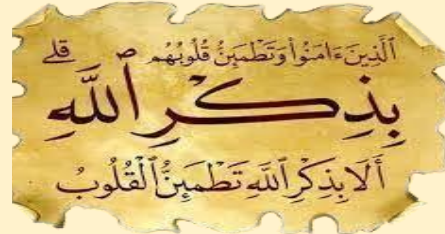 ٱلَّذِينَ ءَامَنُوا۟ وَتَطْمَئِنُّ قُلُوبُهُم ص قلے
بِذِكْرِ ٱللَّهِ
أَلَا بِذِكْرِ ٱللَّهِ تَطْمَئِنُّ ٱلْقُلُوبُ